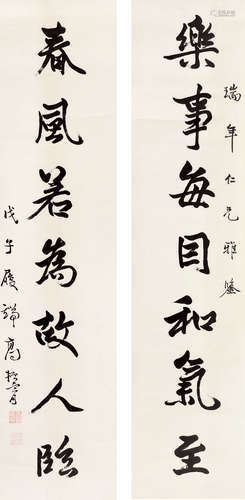 瑞年仁兄雅鑒
樂事每因和氣至
春風若為故人臨
戊午履端高振霄